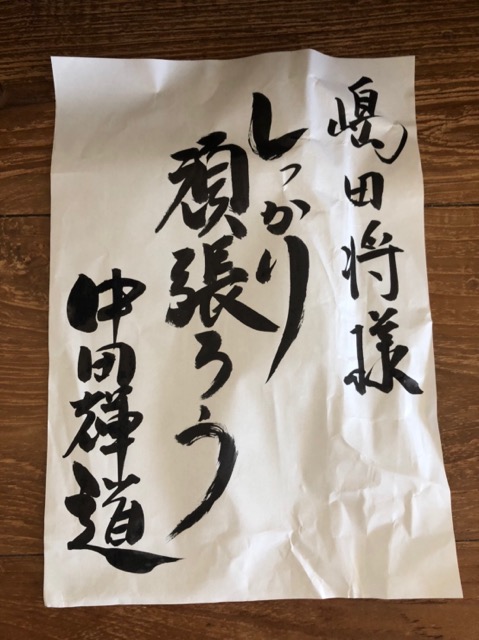 嶋田将様
しっかり
頑張ろう
中田雄道